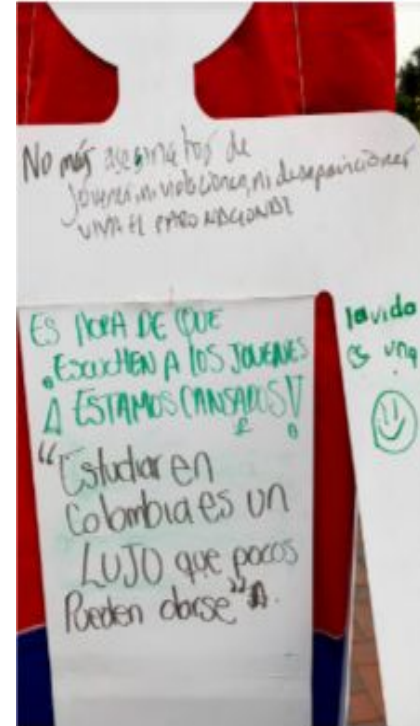 No más asesinatos de
jovenes, ni violaciones, ni desapariciones
VIVA EL PARO NACIONAL
ES HORA DE QUE
ESCUCHEN A LOS JOVENES
¡ ESTAMOS CANSADOS !
“Estudiar en
Colombia es un
LUJO que pocos
Pueden darse”
la vida
es una